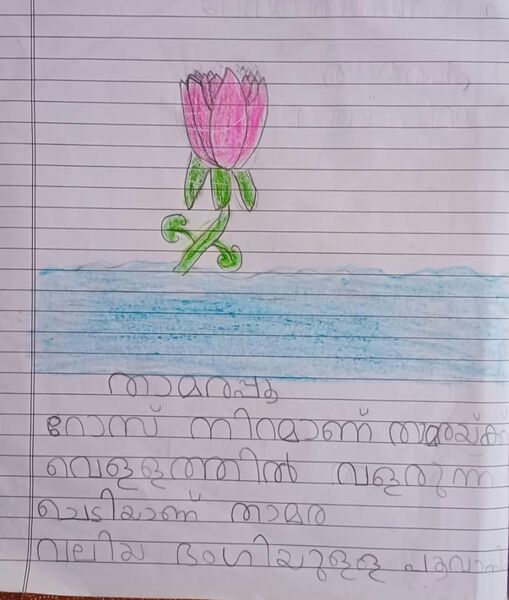 താമരപ്പൂ
റോസ് നിറമാണ് താമരയ്ക്ക്
വെള്ളത്തിൽ വളരുന്ന
ചെടിയാണ് താമര
വലിയ ഭംഗിയുള്ള പൂവാണ്